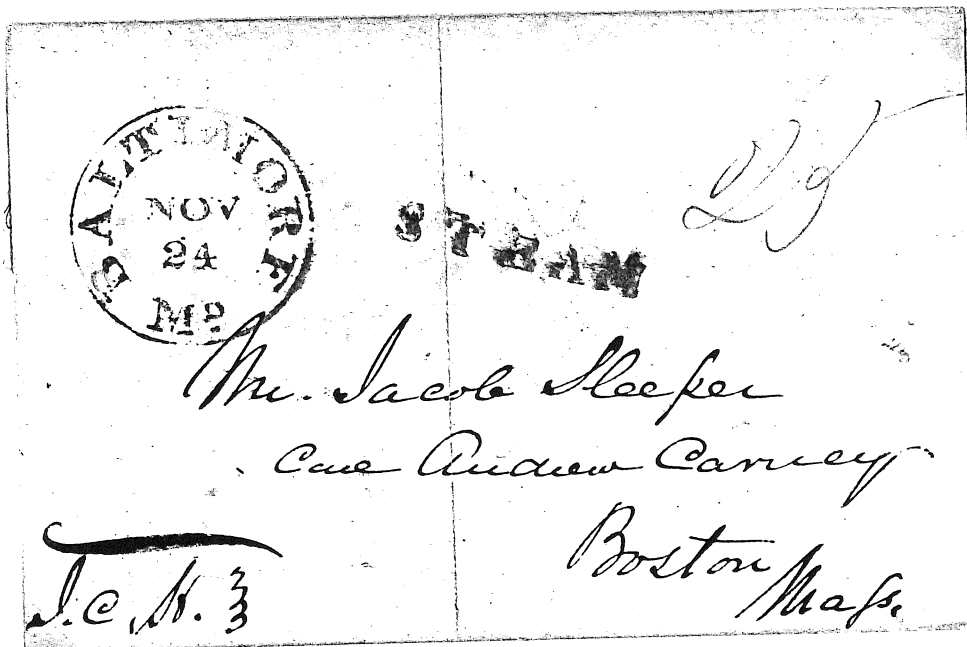 BALTIMORE
NOV
24
Md
STEAM
Mr. Jacob Sleeper
Care Andrew Carney
Boston
Mass.